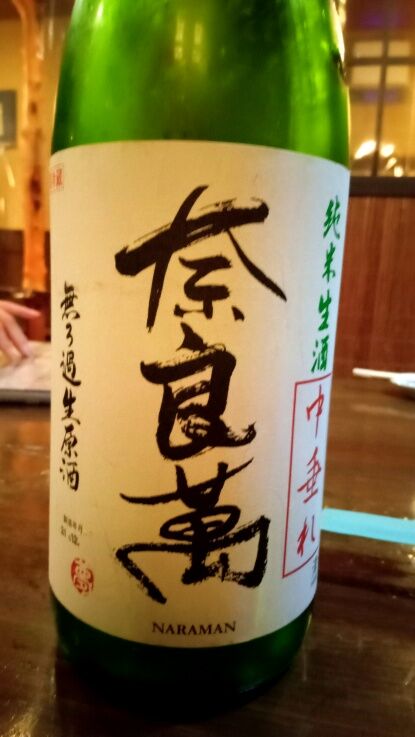 純米生酒
中垂れ
奈良萬
無ろ過生原酒
製造年月
NARAMAN